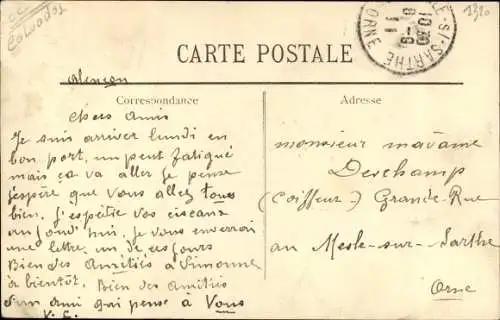 CARTE POSTALE
Correspondance
Adresse
Alençon
chers Amis
Je suis arriver lundi en
bon port, un peut fatigué
mais ça va aller je pense
j'espère que vous allez tous
bien. j'espétie vos ciseaux
aujourd'hui, je vous enverrai
une lettre un de ces jours
Bien des Amitiés à Simonne
à bientôt. Bien des amitiés
d'un ami qui pense à Vous
V. C.
monsieur madame
Deschamp
(coiffeur) Grande-Rue
au Mesle-sur-Sarthe
Orne
E-S/-SARTHE
ORNE
10 30
Calvados
1320